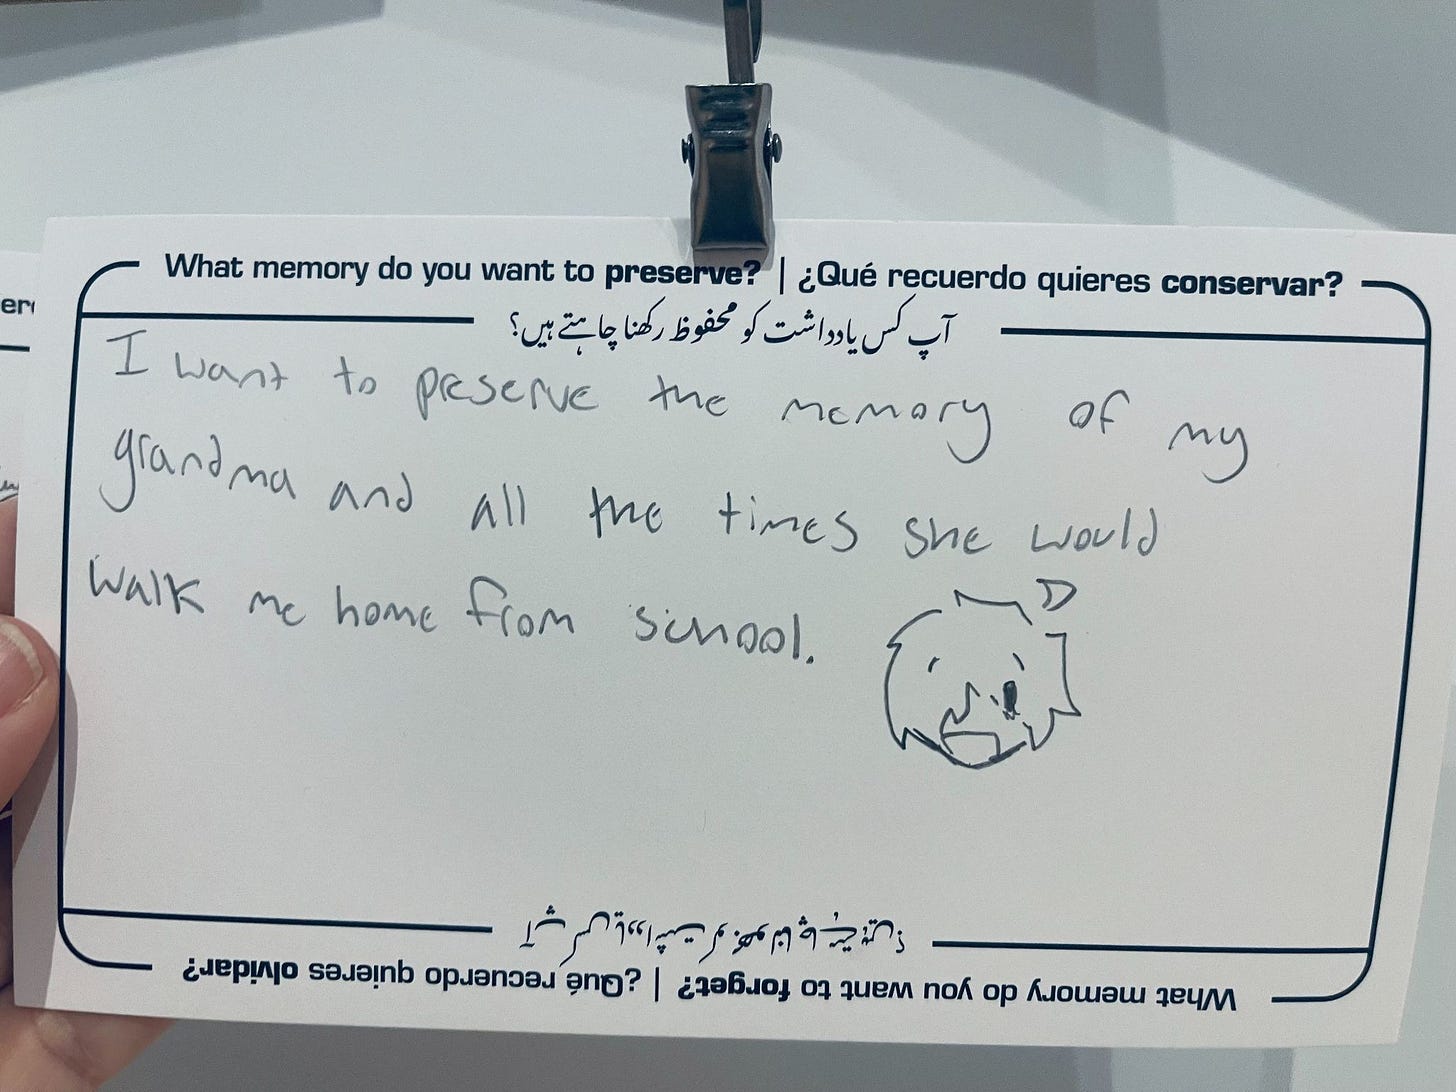 What memory do you want to preserve? | ¿Qué recuerdo quieres conservar?
آپ کس یادداشت کو محفوظ رکھنا چاہتے ہیں؟
I want to preserve the memory of my
grandma and all the times she would
walk me home from school.
آپ کس یادداشت کو بھولنا چاہتے ہیں؟
What memory do you want to forget? | ¿Qué recuerdo quieres olvidar?